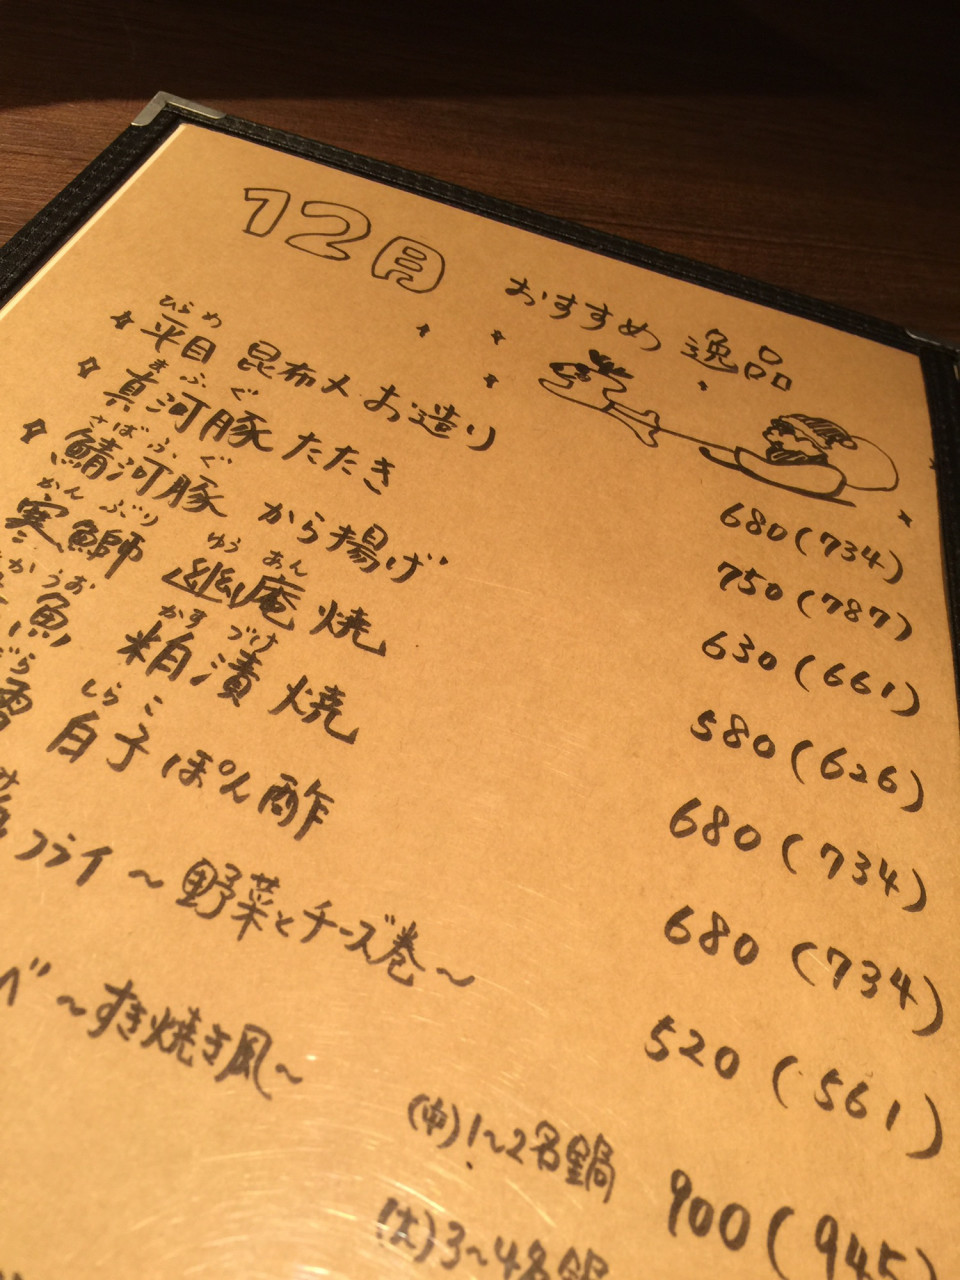 12月 おすすめ 逸品
ひらめ
平目 昆布〆 お造り 680(734)
まふぐ
真河豚 たたき 750(787)
さばふぐ
鯖河豚 から揚げ 630(661)
かんぶり ゆうあん
寒鰤 幽庵焼 580(626)
かうお かすづけ
魚 粕漬焼 680(734)
しらこ
白子ぽん酢 680(734)
フライ ～野菜とチーズ巻～ 520(561)
べ ～すき焼き風～
(中)1～2名鍋 900(945)
(大)3～4名鍋